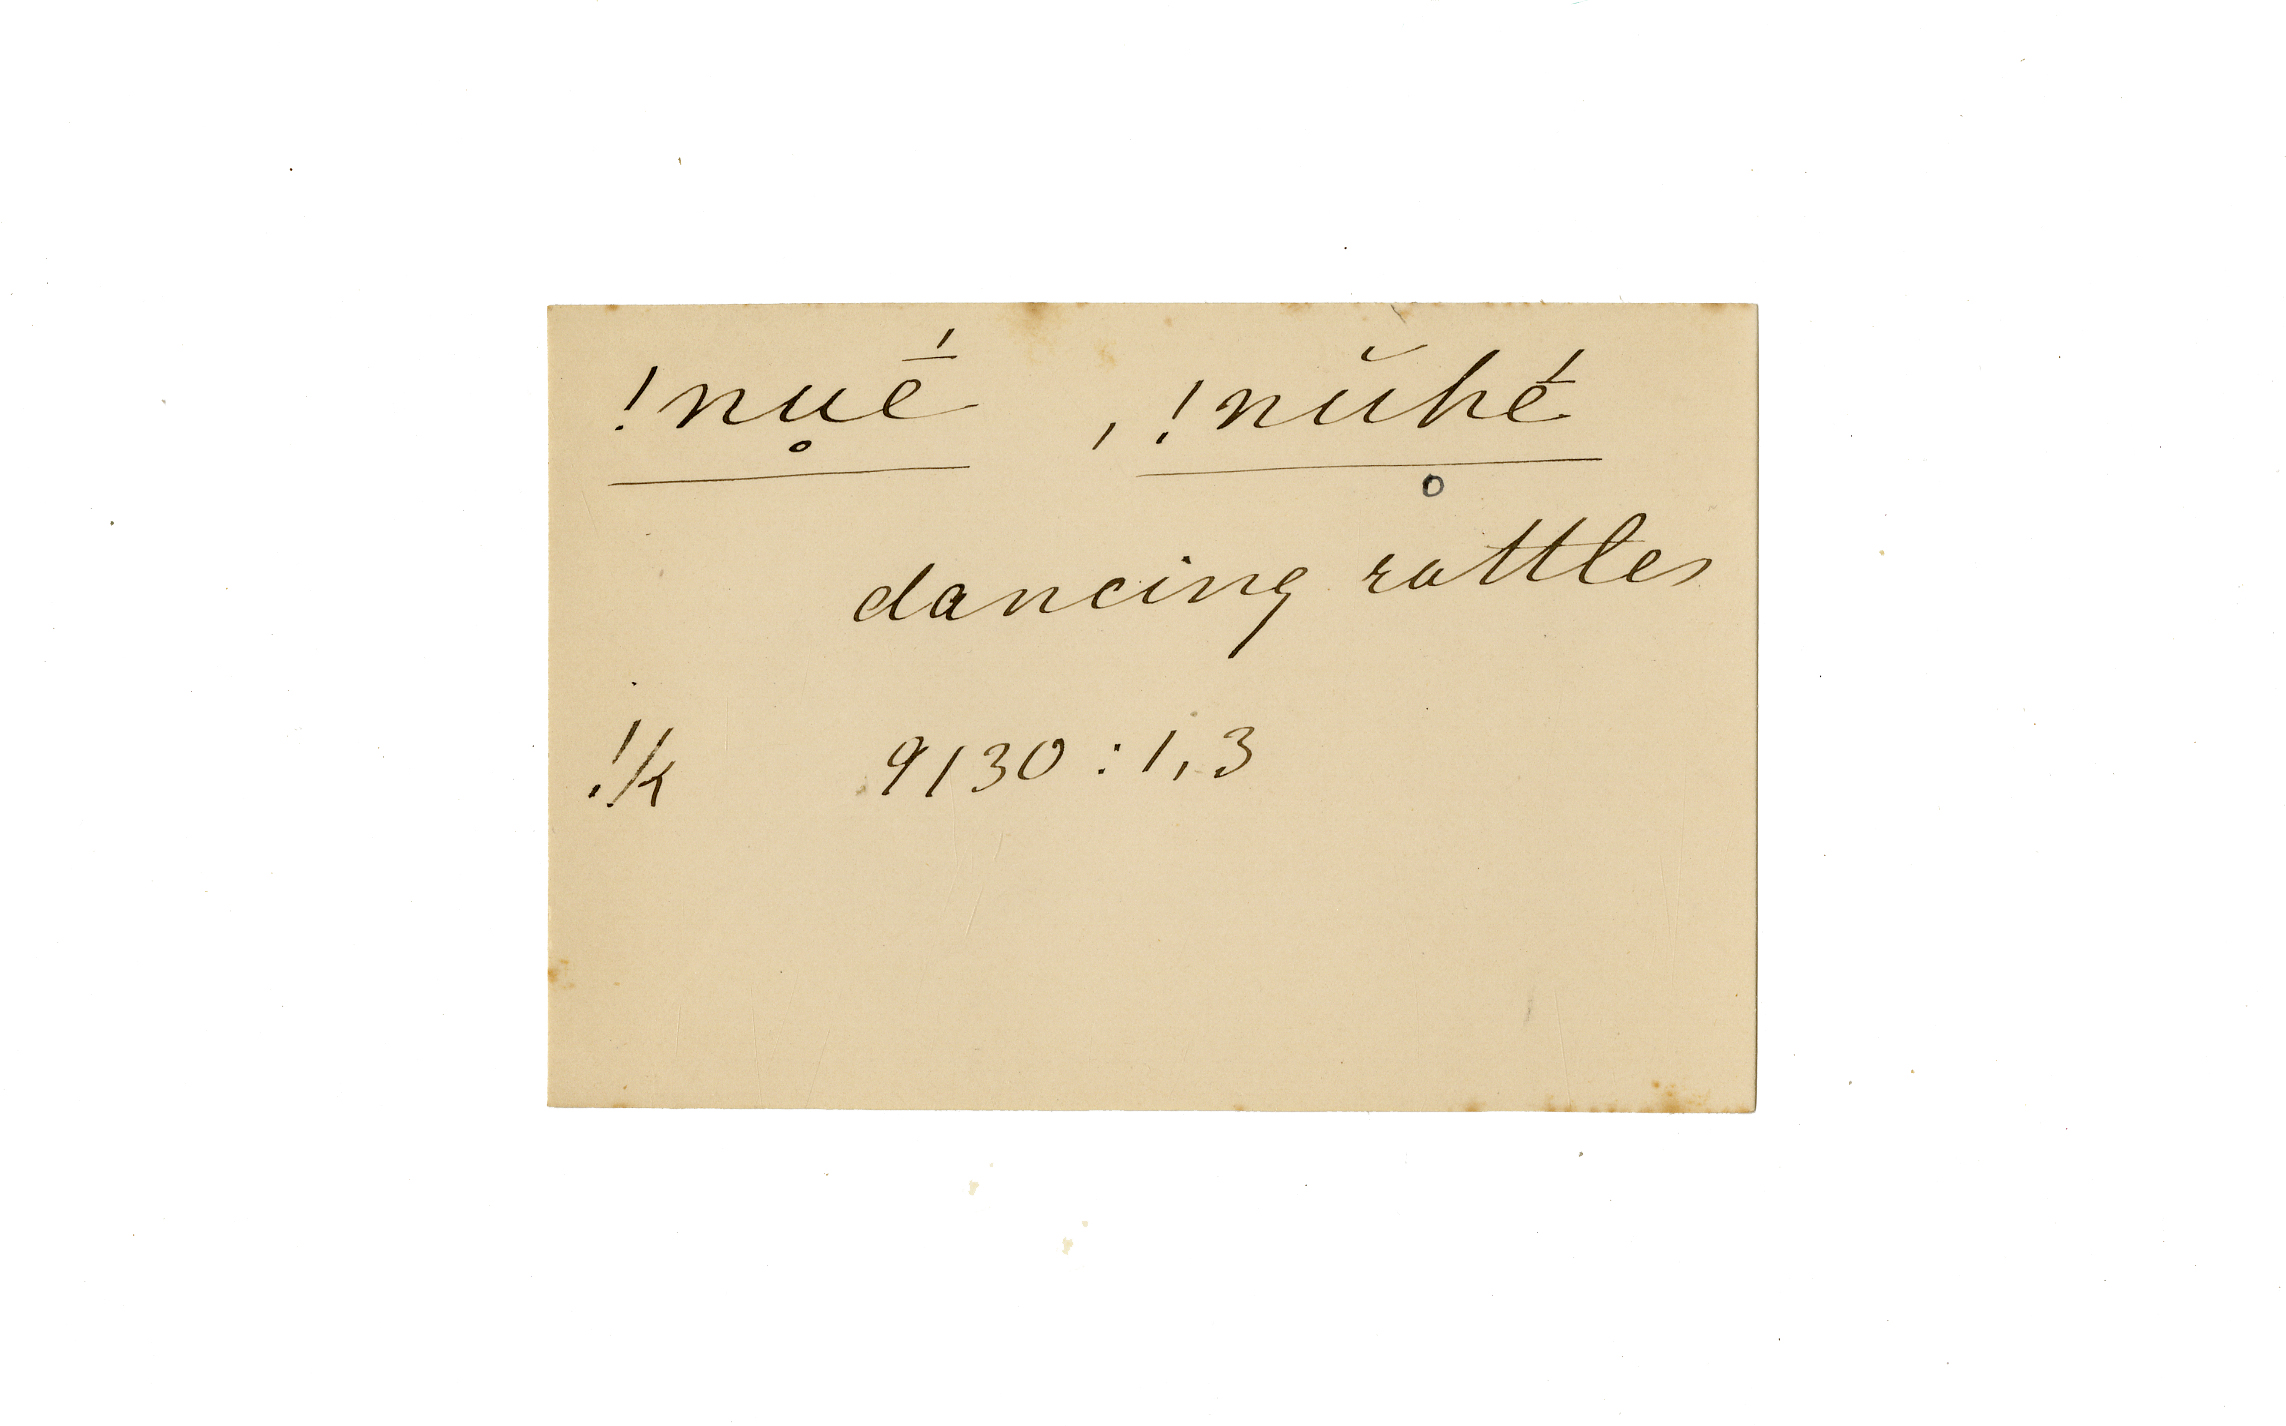 !nu̥ḗ , !nŭh̥ḗ
dancing rattles
!k 9130 : 1, 3